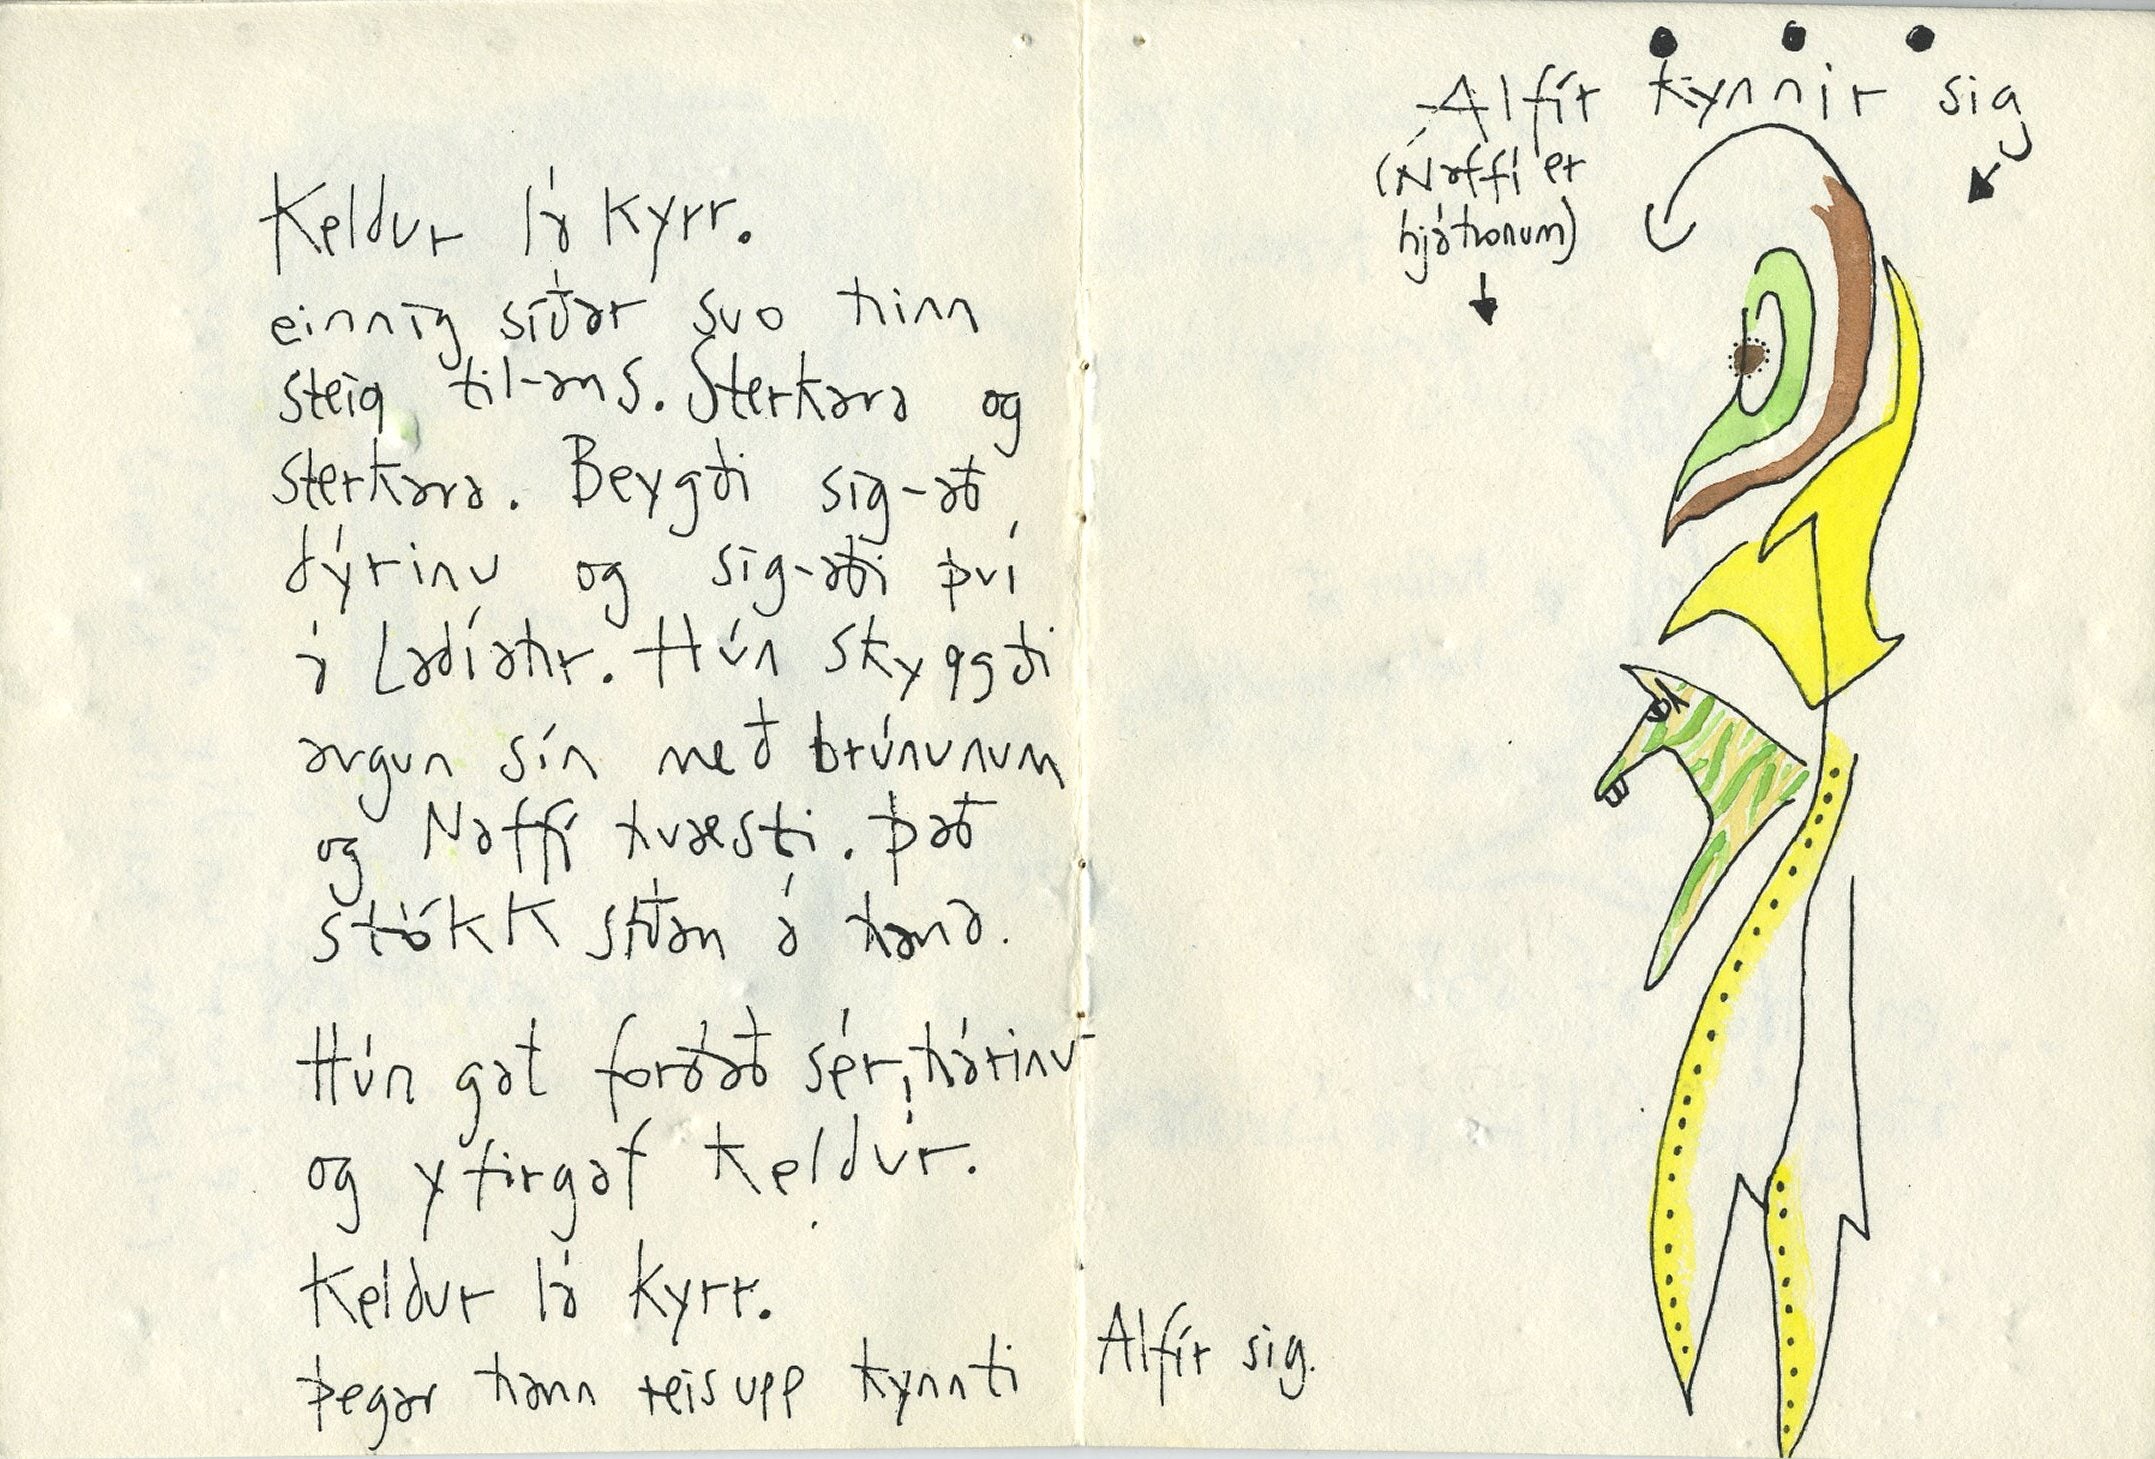 Keldur lá kyrr.
einnig síðar svo hinn
steig til-ans. Sterkara og
sterkara. Beygði sig-að
dýrinu og sig-aði því
á Ladíahr. Hún skyggði
augun sín með brúnunum
og Naffí hvæsti. Það
stökk síðan á hana.
Hún gat forðað sér, hárinu
og yfirgaf Keldur.
Keldur lá kyrr.
Þegar hann reis upp kynnti Alfír sig.
Alfír kynnir sig
(Naffí er
hjá honum)